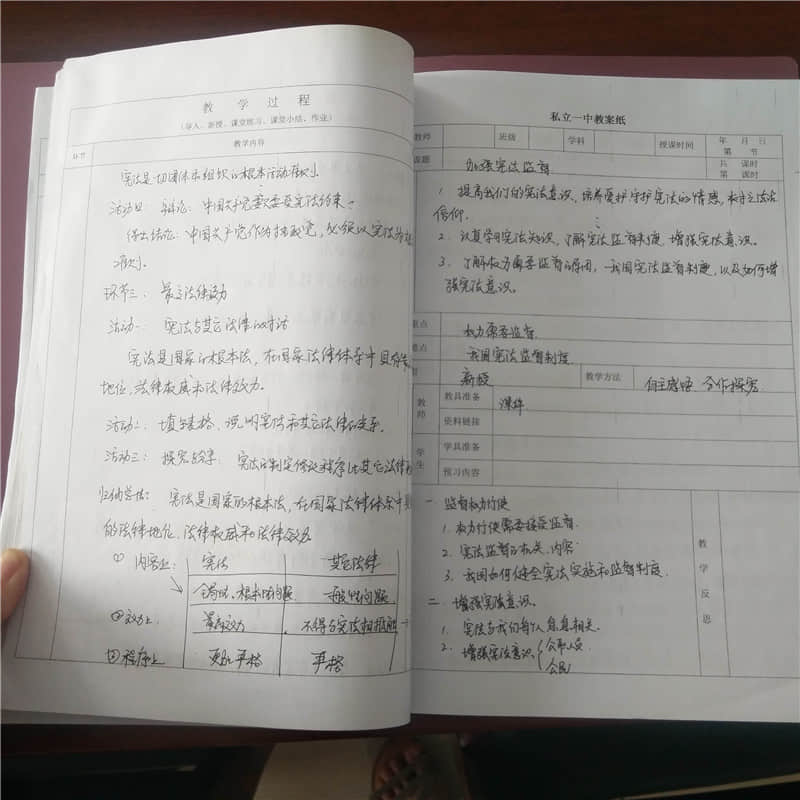 教 学 过 程
（导入、新授、课堂练习、课堂小结、作业）
环节
教学内容
宪法是一切团体和组织的根本活动准则。
活动四：辩论：中国共产党要不要受宪法约束。
得出结论：中国共产党作为执政党，必须以宪法为
准则。
环节三：最高法律效力
活动一：宪法与其它法律的对话
宪法是国家的根本法，在国家法律体系中具有
地位、法律权威和法律效力。
活动二：填写表格，说明宪法和其它法律的关系。
活动三：探究与分享：宪法的制定修改程序比其它法律
归纳总结：宪法是国家的根本法，在国家法律体系中
的法律地位、法律权威和法律效力
① 内容上： 宪法 其它法律
全局性、根本性问题 一般性问题
②效力上 最高效力 不得与宪法相抵触
③程序上 更加严格 严格
私立一中教案纸
教师 班级 学科 授课时间 年 月 日
第 节
课题 加强宪法监督 共 课时
第 课时
1. 提高我们的宪法意识，培养爱护守护宪法的情感，树立法治
信仰。
2. 认真学习宪法知识，了解宪法监督制度，增强宪法意识。
3. 了解权力需要监督的原因，我国宪法监督制度，以及如何增
强宪法意识。
重点 权力需要监督
难点 我国宪法监督制度
新授 教学方法 自主感悟 合作探究
教师 教具准备 课件
资料链接
学生 学具准备
预习内容
一 监督权力行使
1. 权力行使需要接受监督.
2. 宪法监督的机关、内容
3. 我国如何健全宪法实施和监督制度.
二. 增强宪法意识。
1. 宪法与我们每个人息息相关.
2. 增强宪法意识 公职人员
公民
教学反思